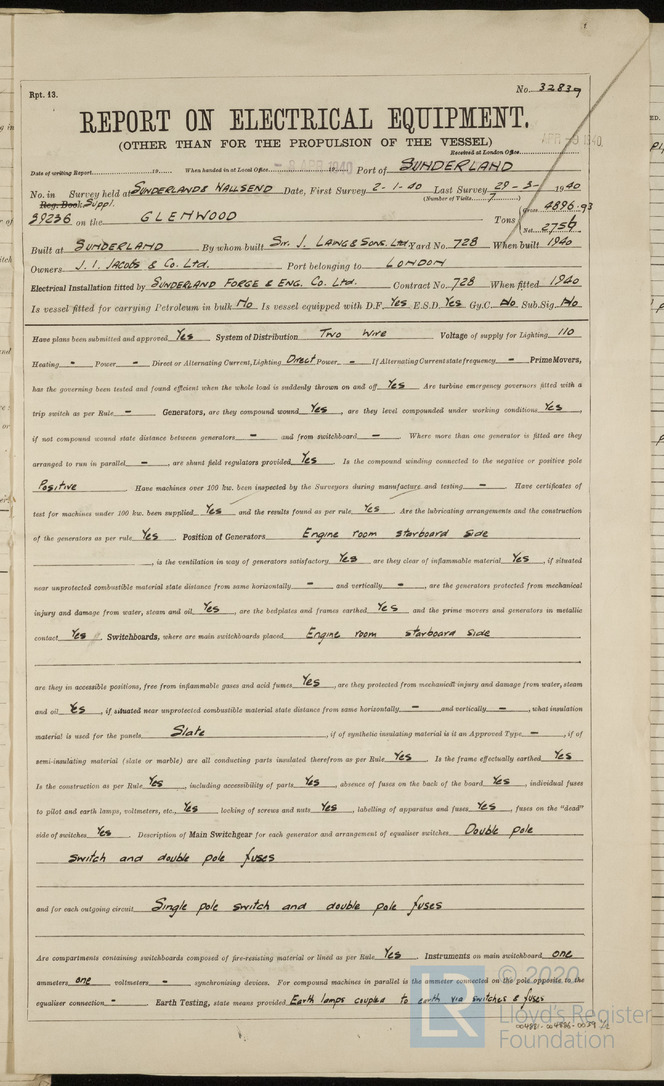 Rpt. 13.
No. 32839
REPORT ON ELECTRICAL EQUIPMENT.
(OTHER THAN FOR THE PROPULSION OF THE VESSEL)
APR -9 1940
Received at London Office
Date of writing Report 19 When handed in at Local Office 19 - 8 APR 1940 Port of SUNDERLAND
No. in Survey held at SUNDERLAND & WALLSEND Date, First Survey 2-1-40 Last Survey 29-3- 1940
Reg. Book. Suppl. (Number of Visits 7)
39236 on the GLENWOOD Tons { Gross 4896.93
Net 2756
Built at SUNDERLAND By whom built SIR. J. LAING & SONS. Ltd. Yard No. 728 When built 1940
Owners J. I. JACOBS & Co. Ltd. Port belonging to LONDON
Electrical Installation fitted by SUNDERLAND FORGE & ENG. Co. Ltd. Contract No. 728 When fitted 1940
Is vessel fitted for carrying Petroleum in bulk No Is vessel equipped with D.F. Yes E.S.D. Yes Gy.C. No Sub.Sig. No
Have plans been submitted and approved Yes System of Distribution Two Wire Voltage of supply for Lighting 110
Heating - Power - Direct or Alternating Current, Lighting Direct Power - If Alternating Current state frequency - Prime Movers,
has the governing been tested and found efficient when the whole load is suddenly thrown on and off Yes Are turbine emergency governors fitted with a
trip switch as per Rule - Generators, are they compound wound Yes, are they level compounded under working conditions Yes,
if not compound wound state distance between generators - and from switchboard - Where more than one generator is fitted are they
arranged to run in parallel -, are shunt field regulators provided Yes Is the compound winding connected to the negative or positive pole
Positive Have machines over 100 kw. been inspected by the Surveyors during manufacture and testing - Have certificates of
test for machines under 100 kw. been supplied Yes and the results found as per rule Yes Are the lubricating arrangements and the construction
of the generators as per rule Yes Position of Generators Engine room starboard side
, is the ventilation in way of generators satisfactory Yes are they clear of inflammable material Yes, if situated
near unprotected combustible material state distance from same horizontally - and vertically -, are the generators protected from mechanical
injury and damage from water, steam and oil Yes, are the bedplates and frames earthed Yes and the prime movers and generators in metallic
contact Yes. Switchboards, where are main switchboards placed Engine room starboard side
are they in accessible positions, free from inflammable gases and acid fumes Yes, are they protected from mechanical injury and damage from water, steam
and oil Yes, if situated near unprotected combustible material state distance from same horizontally - and vertically -, what insulation
material is used for the panels Slate, if of synthetic insulating material is it an Approved Type -, if of
semi-insulating material (slate or marble) are all conducting parts insulated therefrom as per Rule Yes Is the frame effectually earthed Yes
Is the construction as per Rule Yes, including accessibility of parts Yes, absence of fuses on the back of the board Yes, individual fuses
to pilot and earth lamps, voltmeters, etc., Yes locking of screws and nuts Yes, labelling of apparatus and fuses Yes, fuses on the "dead"
side of switches Yes Description of Main Switchgear for each generator and arrangement of equaliser switches Double pole
switch and double pole fuses
and for each outgoing circuit Single pole switch and double pole fuses
Are compartments containing switchboards composed of fire-resisting material or lined as per Rule Yes Instruments on main switchboard one
ammeters one voltmeters - synchronising devices. For compound machines in parallel is the ammeter connected on the pole opposite to the
equaliser connection - Earth Testing, state means provided Earth lamps coupled to earth via switches & fuses
© 2020
LR
Lloyd's Register
Foundation
004881-004886-0039 1/2